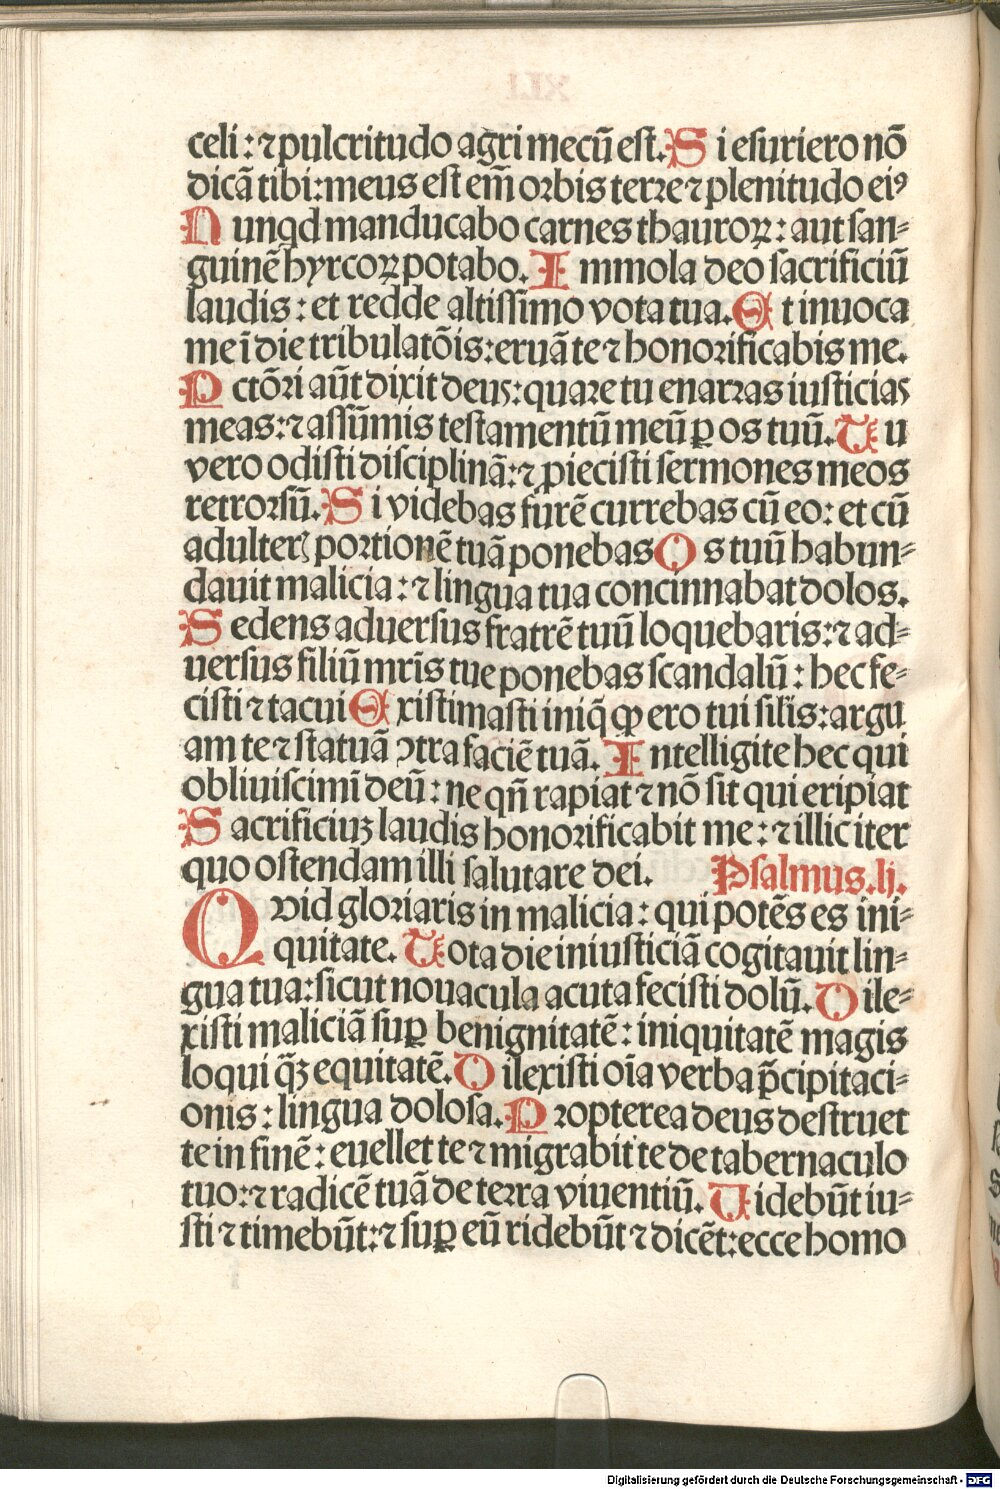 celi: ⁊ pulcritudo agri mecū est. Si esuriero nō
dicā tibi: meus est em̄ orbis terre ⁊ plenitudo eiꝰ
Nunqd manducabo carnes thauroꝝ: aut san⸗
guinē hyrcoꝝ potabo. Immola deo sacrificiū
laudis: et redde altissimo vota tua. Et inuoca
me ī die tribulatōis: eruā te ⁊ honorificabis me.
Pctōri aūt dixit deus: quare tu enarras iusticias
meas: ⁊ assūmis testamentū meū ꝑ os tuū. Tu
vero odisti disciplinā: ⁊ ꝓiecisti sermones meos
retrorsū. Si videbas furē currebas cū eo: et cū
adulterꝭ portionē tuā ponebas Os tuū habun⸗
dauit malicia: ⁊ lingua tua concinnabat dolos.
Sedens aduersus fratrē tuū loquebaris: ⁊ ad⸗
uersus filiū mr̄is tue ponebas scandalū: hec fe⸗
cisti ⁊ tacui Existimasti iniq̄ ꝙ ero tui silis: argu
am te ⁊ statuā ꝯtra faciē tuā. Intelligite hec qui
obliuiscimī deū: ne qn̄ rapiat ⁊ nō sit qui eripiat
Sacrificiuꝫ laudis honorificabit me: ⁊ illic iter
quo ostendam illi salutare dei. Psalmus. lj.
Qvid gloriaris in malicia: qui potēs es ini⸗
quitate. Tota die iniusticiā cogitauit lin⸗
gua tua: sicut nouacula acuta fecisti dolū. Dile⸗
xisti maliciā suꝑ benignitatē: iniquitatē magis
loqui q̄ꝫ equitatē. Dilexisti oīa verba p̄cipitaci⸗
onis: lingua dolosa. Propterea deus destruet
te in finē: euellet te ⁊ migrabit te de tabernaculo
tuo: ⁊ radicē tuā de terra viuentiū. Uidebūt iu⸗
sti ⁊ timebūt: ⁊ suꝑ eū ridebūt ⁊ dicēt: ecce homo
Digitalisierung gefördert durch die Deutsche Forschungsgemeinschaft - DFG